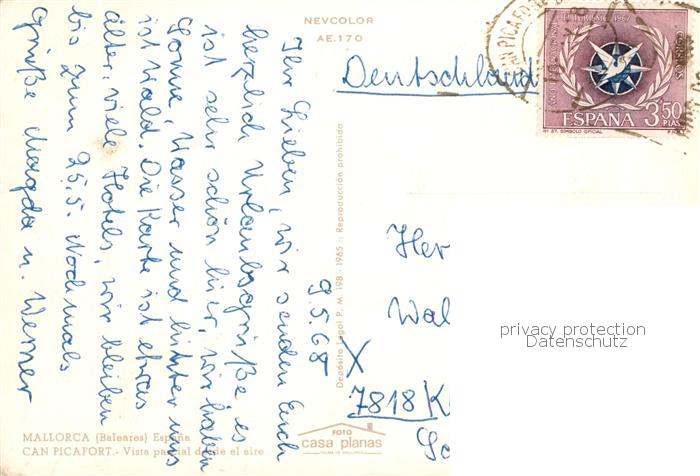 NEVCOLOR
AE.170
Deutschland
CAN PICAFORT
AÑO INTERNACIONAL DEL TURISMO, 1967
ESPAÑA 3,50 PTAS
Nº 37. SIMBOLO OFICIAL
9.5.68
Ihr Lieben, wir senden Euch
herzlich Urlaubsgrüße es
ist sehr schön hier, wir haben
Sonne, Wasser und hinter uns
ist Wald. Die Karte ist etwas
älter, viele Hotels, wir bleiben
bis zum 25.5. Nochmals
Grüße Magda u. Werner
Depósito Legal P. M. 198 - 1965 :: Reproducción prohibida
Her
Wal
X
7818/K
privacy protection
Datenschutz
MALLORCA (Baleares) España
CAN PICAFORT.- Vista parcial desde el aire
FOTO
casa planas